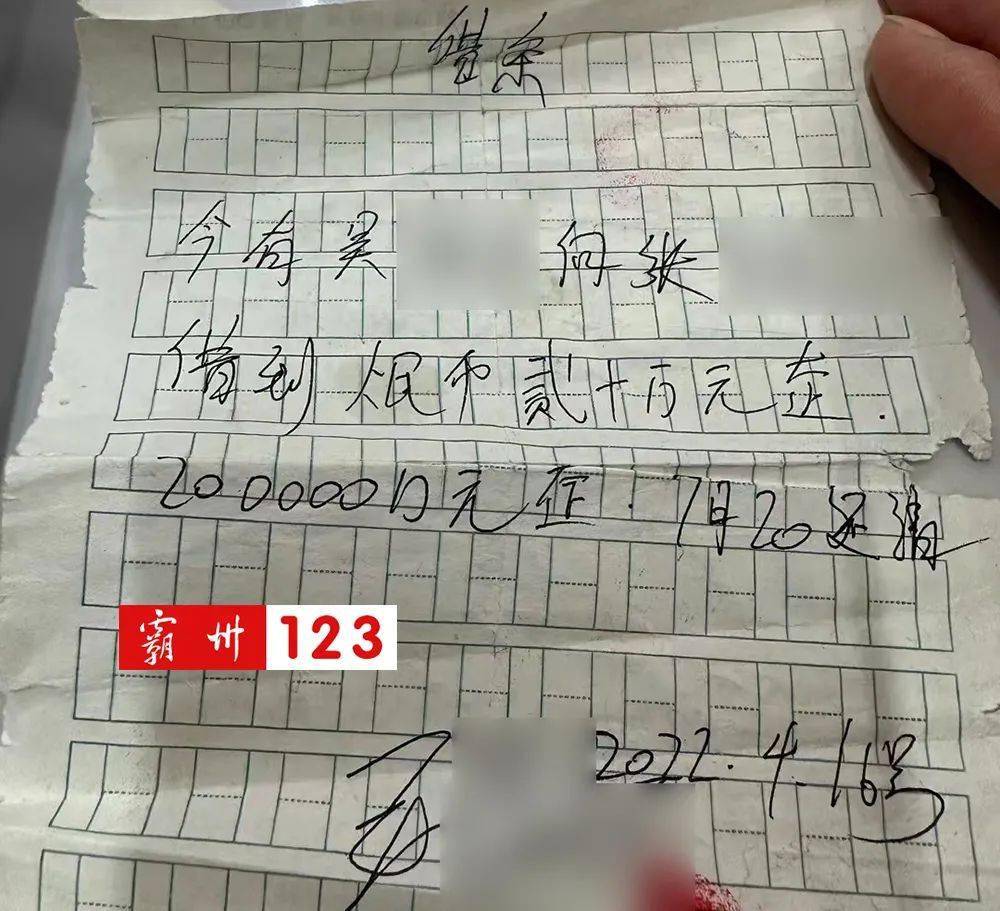 借条
今有吴 向张
借到人民币贰十万元整.
200000元整. 7月20还清
霸州123
2022.4.16号